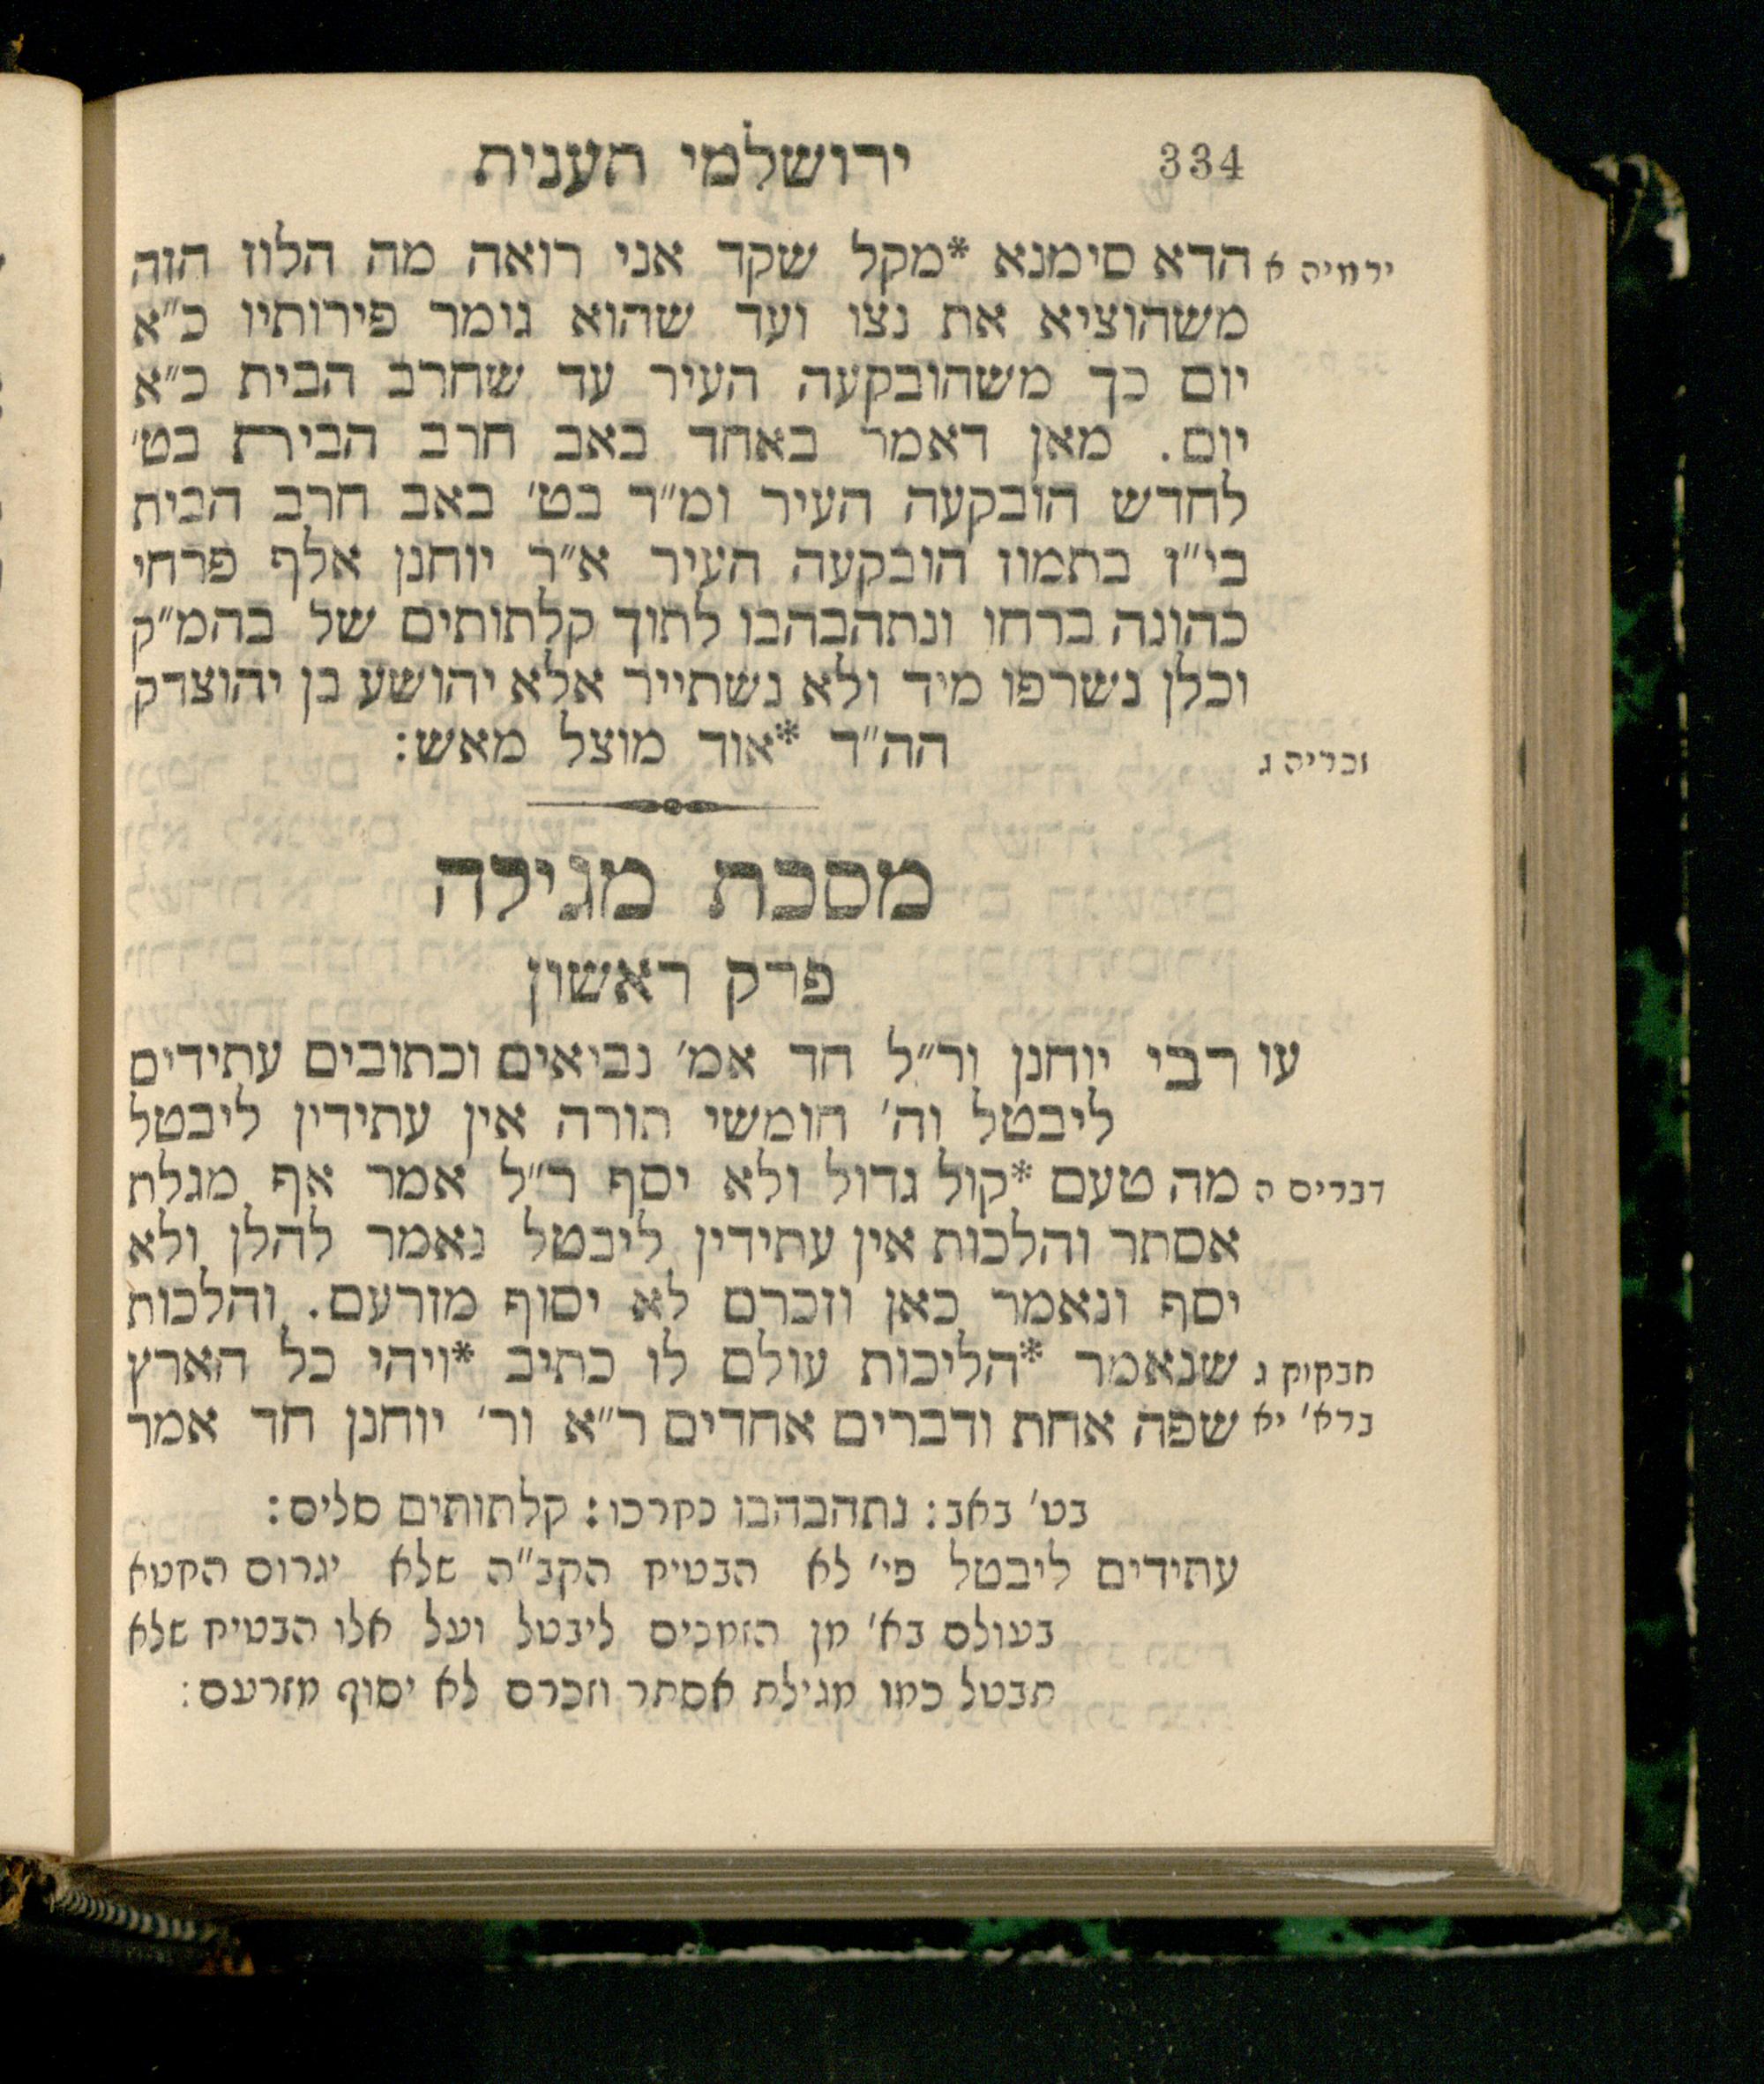 334 ירושלמי תענית
ירמיה א הדא סימנא *מקל שקד אני רואה מה הלוז הזה
משהוציא את נצו ועד שהוא גומר פירותיו כ״א
יום כך משהובקעה העיר עד שחרב הבית כ״א
יום. מאן דאמר באחד באב חרב הבית בט׳
לחדש הובקעה העיר ומ״ד בט׳ באב חרב הבית
בי״ז בתמוז הובקעה העיר א״ר יוחנן אלף פרחי
כהונה ברחו ונתהבהבו לתוך קלתותים של בהמ״ק
וכלן נשרפו מיד ולא נשתייר אלא יהושע בן יהוצדק
זכריה ג הה״ד *אוד מוצל מאש:
מסכת מגילה
פרק ראשון
עו רבי יוחנן ור״ל חד אמ׳ נביאים וכתובים עתידים
ליבטל וה׳ חומשי תורה אין עתידין ליבטל
דברים ה מה טעם *קול גדול ולא יסף ר״ל אמר אף מגלת
אסתר והלכות אין עתידין ליבטל נאמר להלן ולא
יסף ונאמר כאן וזכרם לא יסוף מזרעם. והלכות
חבקוק ג שנאמר *הליכות עולם לו כתיב *ויהי כל הארץ
ברא׳ יא שפה אחת ודברים אחדים ר״א ור׳ יוחנן חד אמר
בט׳ באב: נתהבהבו נחרכו: קלתותים סלים:
עתידים ליבטל פי׳ לא הבטיח הקב״ה שלא יגרום החטא
בעולם בא׳ מן הזמנים ליבטל ועל אלו הבטיח שלא
תבטל כמו מגילת אסתר וזכרם לא יסוף מזרעם: